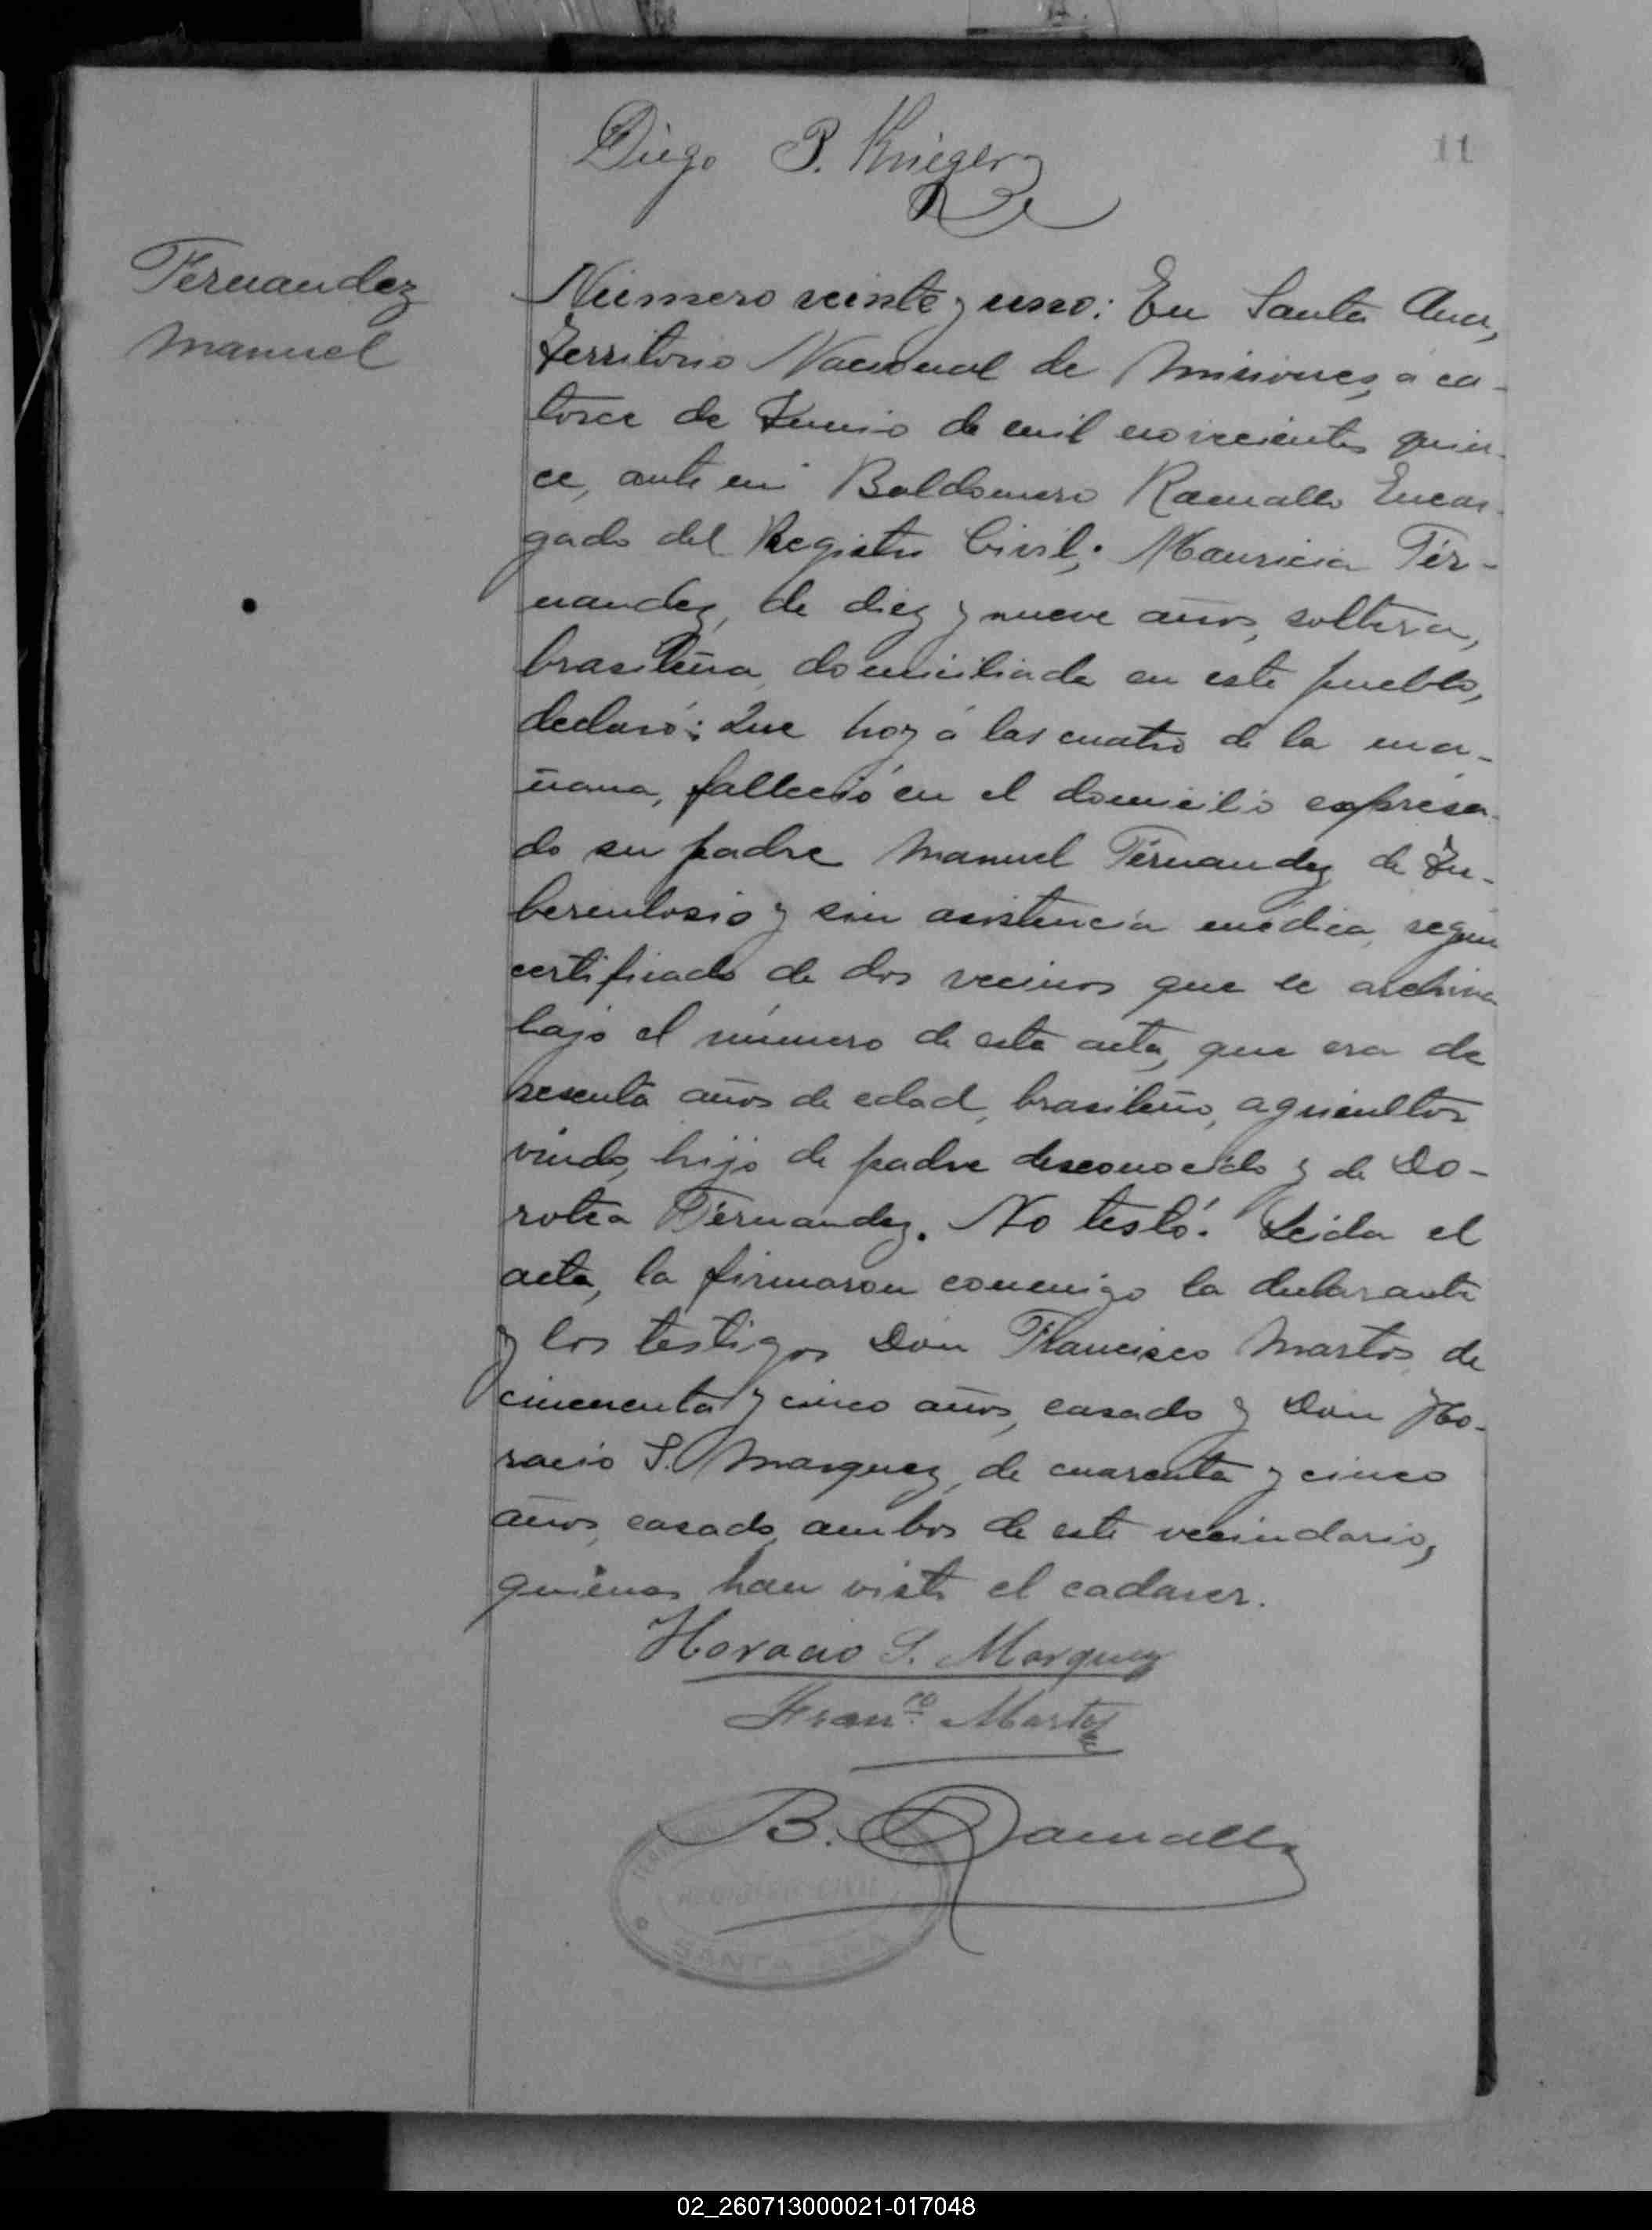 11
Diego P. Krieger
Fernandez
Manuel
Número veinte y uno: En Santa Ana,
Territorio Nacional de Misiones, á ca-
torce de Junio de mil novecientos quin-
ce, ante mi Baldomero Ramallo Encar-
gado del Registro Civil; Mauricia Fer-
nandez, de diez y nueve años, soltera,
brasileña, domiciliada en este pueblo,
declaró: Que hoy á las cuatro de la ma-
ñana, falleció en el domicilio expresa-
do su padre Manuel Fernandez de Tu-
berculosis y sin asistencia médica, segun
certificado de dos vecinos que se archiva
bajo el número de esta acta, que era de
sesenta años de edad, brasileño, agricultor
viudo, hijo de padre desconocido y de Do-
rotea Fernandez. No testó. Leida el
acta, la firmaron conmigo la declarante
y los testigos Don Francisco Martos, de
cincuenta y cinco años, casado y Don Ho-
racio S. Marquez, de cuarenta y cinco
años, casado, ambos de este vecindario,
quienes han visto el cadaver.
Horacio S. Marquez
Franco. Martos
B. Ramallo
REGISTRO CIVIL
SANTA ANA
02_260713000021-017048